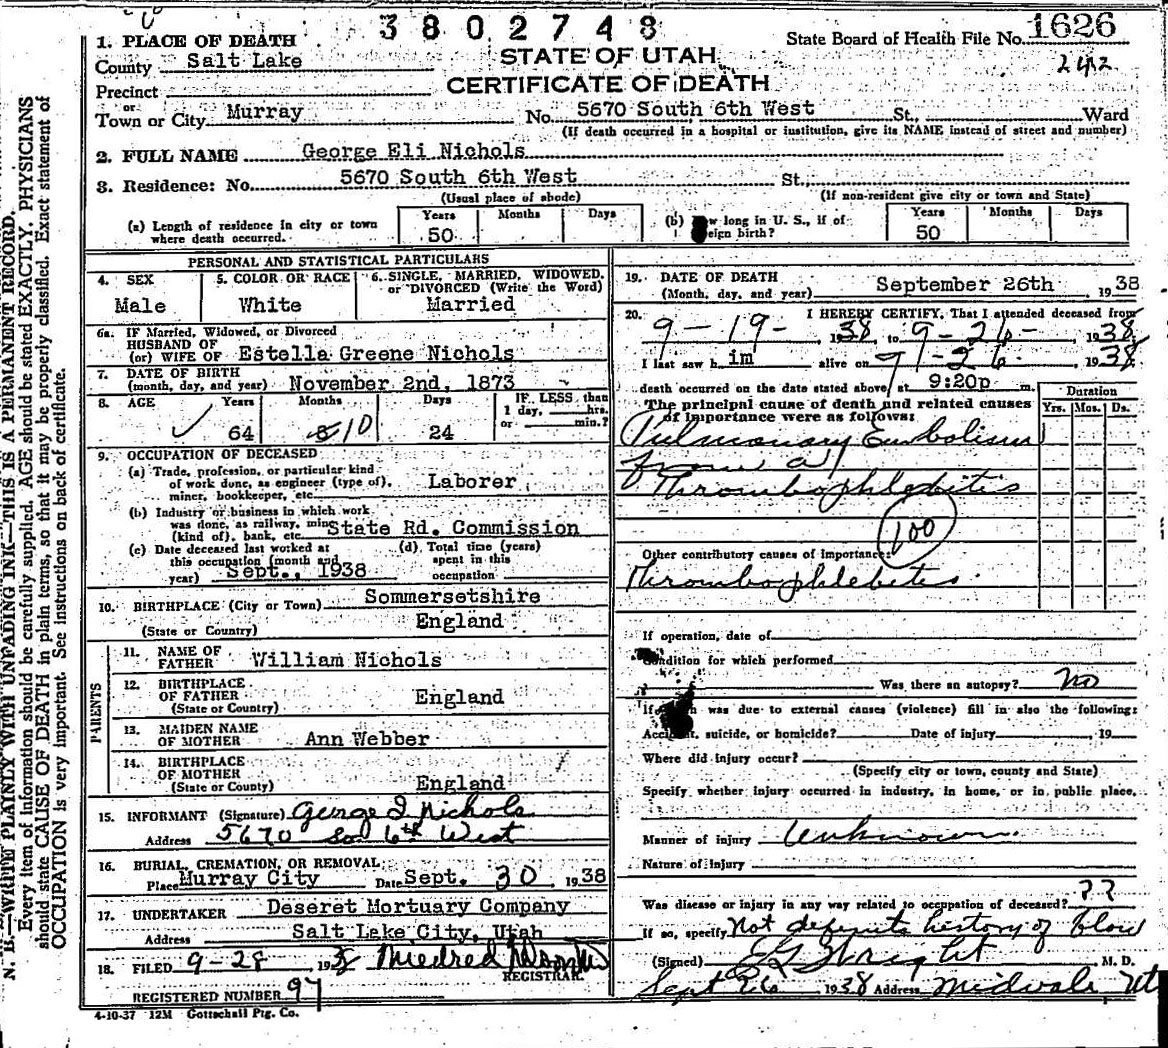 3 8 0 2 7 4 8
State Board of Health File No. 1626
242
1. PLACE OF DEATH
County Salt Lake
STATE OF UTAH
CERTIFICATE OF DEATH
Precinct
or
Town or City Murray No. 5670 South 6th West St., Ward
(If death occurred in a hospital or institution, give its NAME instead of street and number)
2. FULL NAME George Eli Nichols
3. Residence: No. 5670 South 6th West St.,
(Usual place of abode) (If non-resident give city or town and State)
(a) Length of residence in city or town where death occurred. Years 50 Months Days
(b) How long in U. S., if of foreign birth? Years 50 Months Days
PERSONAL AND STATISTICAL PARTICULARS
4. SEX Male
5. COLOR OR RACE White
6. SINGLE, MARRIED, WIDOWED, or DIVORCED (Write the Word) Married
6a. IF Married, Widowed, or Divorced
HUSBAND OF
(or) WIFE OF Estella Greene Nichols
7. DATE OF BIRTH
(month, day, and year) November 2nd, 1873
8. AGE Years 64 Months 10 Days 24
IF LESS than 1 day, hrs. or min.?
9. OCCUPATION OF DECEASED
(a) Trade, profession, or particular kind
of work done, as engineer (type of),
miner, bookkeeper, etc. Laborer
(b) Industry or business in which work
was done, as railway, mine
(kind of), bank, etc. State Rd. Commission
(c) Date deceased last worked at
this occupation (month and
year) Sept., 1938
(d) Total time (years)
spent in this
occupation
10. BIRTHPLACE (City or Town) Sommersetshire
(State or Country) England
PARENTS
11. NAME OF
FATHER William Nichols
12. BIRTHPLACE
OF FATHER England
(State or Country)
13. MAIDEN NAME
OF MOTHER Ann Webber
14. BIRTHPLACE
OF MOTHER
(State or Country) England
15. INFORMANT (Signature) George I Nichols
Address 5670 So 6th West
16. BURIAL, CREMATION, OR REMOVAL:
Place Murray City Date Sept. 30, 1938
17. UNDERTAKER Deseret Mortuary Company
Address Salt Lake City, Utah
18. FILED 9-28 1938 Mildred
REGISTRAR.
REGISTERED NUMBER 97
4-10-37 12M Gottschall Ptg. Co.
19. DATE OF DEATH
(Month, day, and year) September 26th, 1938
20. I HEREBY CERTIFY, That I attended deceased from
9-19- 1938, to 9-26-, 1938
I last saw him alive on 9-26- 1938
death occurred on the date stated above, at 9:20p m.
The principal cause of death and related causes
of importance were as follows:
Duration
Yrs. Mos. Ds.
Pulmonary Embolism
from a
Thrombophlebitis
100
Other contributory causes of importance:
Thrombophlebitis
If operation, date of
Condition for which performed
Was there an autopsy? No
If death was due to external causes (violence) fill in also the following:
Accident, suicide, or homicide? Date of injury , 19
Where did injury occur?
(Specify city or town, county and State)
Specify whether injury occurred in industry, in home, or in public place.
Manner of injury Unknown.
Nature of injury
Was disease or injury in any way related to occupation of deceased? ??
If so, specify Not definite history of blow
(Signed) E G Wright M. D.
Sept 26 1938 Address Midvale Ut
N. B.—WRITE PLAINLY WITH UNFADING INK—THIS IS A PERMANENT RECORD.
Every item of information should be carefully supplied. AGE should be stated EXACTLY. PHYSICIANS
should state CAUSE OF DEATH in plain terms, so that it may be properly classified. Exact statement of
OCCUPATION is very important. See instructions on back of certificate.